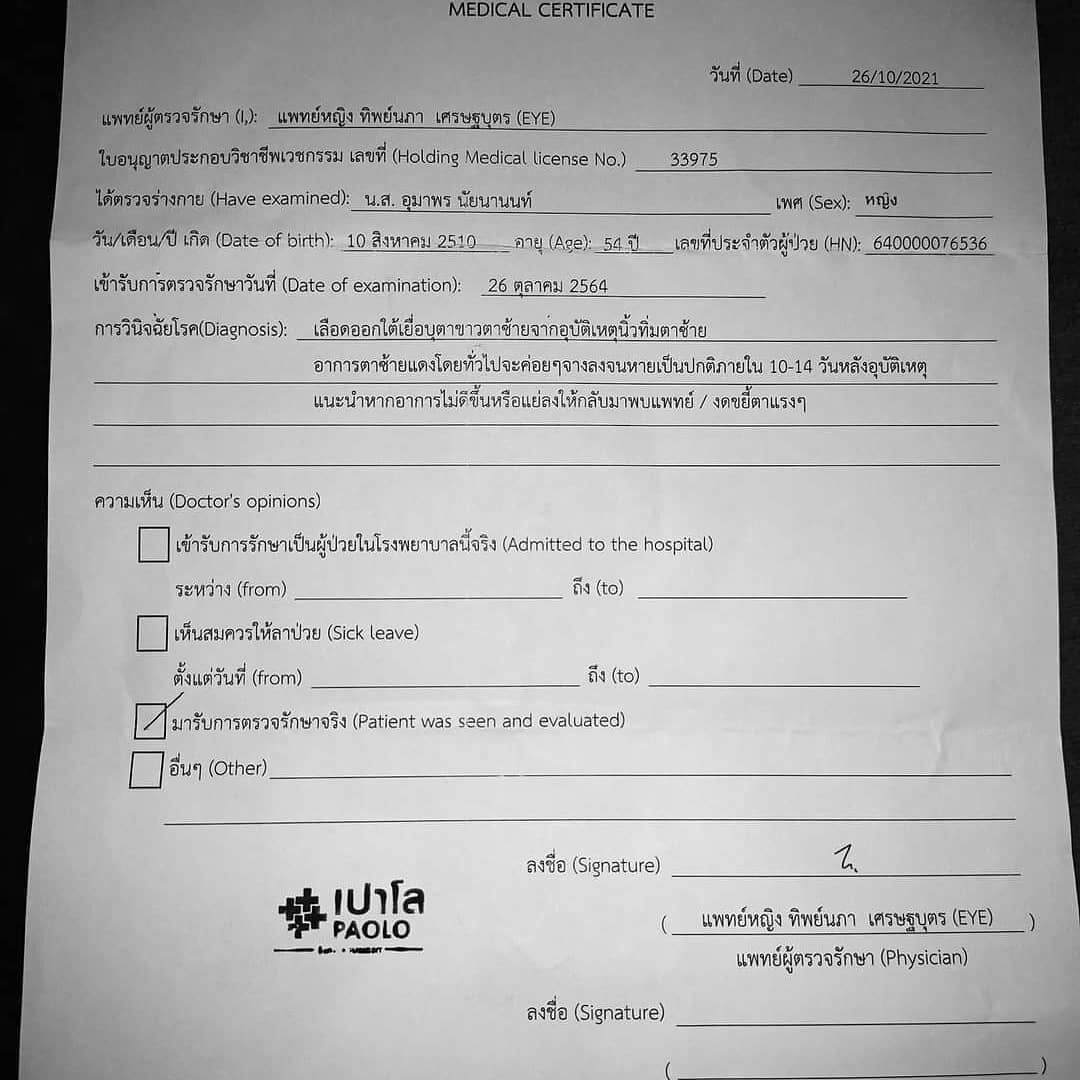 MEDICAL CERTIFICATE
วันที่ (Date) 26/10/2021
แพทย์ผู้ตรวจรักษา (I,): แพทย์หญิง ทิพย์นภา เศรษฐบุตร (EYE)
ใบอนุญาตประกอบวิชาชีพเวชกรรม เลขที่ (Holding Medical license No.) 33975
ได้ตรวจร่างกาย (Have examined): น.ส. อุมาพร นัยนานนท์ เพศ (Sex): หญิง
วัน/เดือน/ปี เกิด (Date of birth): 10 สิงหาคม 2510 อายุ (Age): 54 ปี เลขที่ประจำตัวผู้ป่วย (HN): 640000076536
เข้ารับการตรวจรักษาวันที่ (Date of examination): 26 ตุลาคม 2564
การวินิจฉัยโรค(Diagnosis): เลือดออกใต้เยื่อบุตาขาวตาซ้ายจากอุบัติเหตุนิ้วทิ่มตาซ้าย
อาการตาซ้ายแดงโดยทั่วไปจะค่อยๆจางลงจนหายเป็นปกติภายใน 10-14 วันหลังอุบัติเหตุ
แนะนำหากอาการไม่ดีขึ้นหรือแย่ลงให้กลับมาพบแพทย์ / งดขยี้ตาแรงๆ
ความเห็น (Doctor's opinions)
เข้ารับการรักษาเป็นผู้ป่วยในโรงพยาบาลนี้จริง (Admitted to the hospital)
ระหว่าง (from) ถึง (to)
เห็นสมควรให้ลาป่วย (Sick leave)
ตั้งแต่วันที่ (from) ถึง (to)
มารับการตรวจรักษาจริง (Patient was seen and evaluated)
อื่นๆ (Other)
ลงชื่อ (Signature)
เปาโล
PAOLO
( แพทย์หญิง ทิพย์นภา เศรษฐบุตร (EYE) )
แพทย์ผู้ตรวจรักษา (Physician)
ลงชื่อ (Signature)
( )